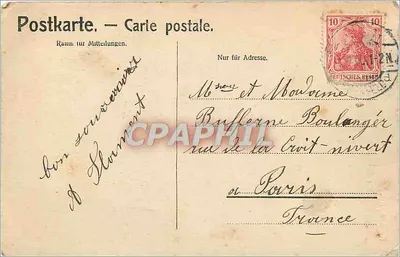 Postkarte. — Carte postale.
Raum für Mitteilungen.
Nur für Adresse.
10 10
DEUTSCHES REICH
bon souvenir
A Flament
Msieur et Madame
Bufferne Boulanger
rue de la Croit-nivert
a Paris
France
CPAPHIL